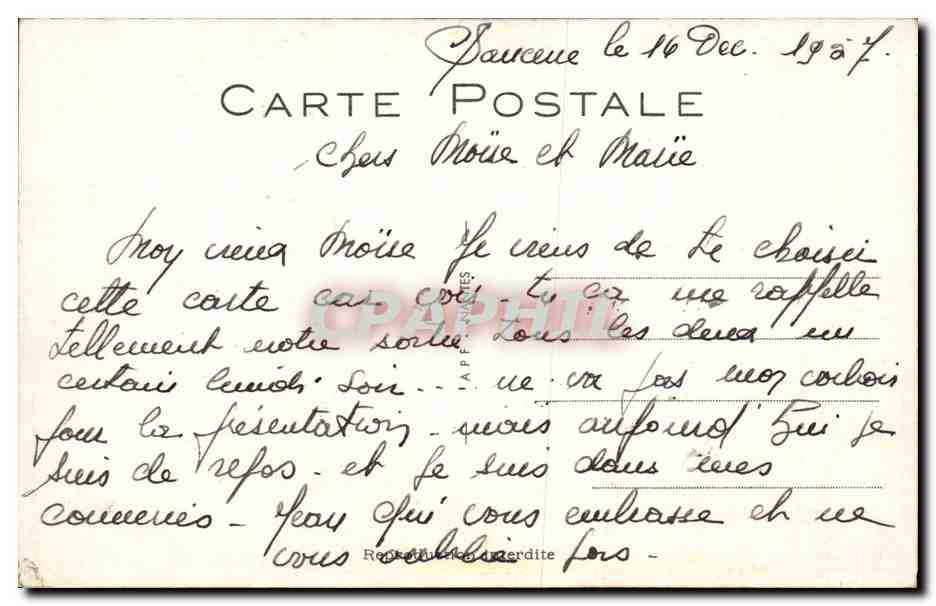 le 16 Dec. 1957.
CARTE POSTALE
Chers Moïse et Marie
Moy vieux Moïse Je viens de te choisir
cette carte car vois-tu ça me rappelle
CPAPHIL
tellement notre sortie tous les deux un
certain lundi soir... ne va pas
pour la présentation - mais aujourd'hui je
suis de repos - et je suis dans mes
conneries - Jean qui vous embrasse et ne
vous oublie pas -
Reproduction interdite
A P F NANTES